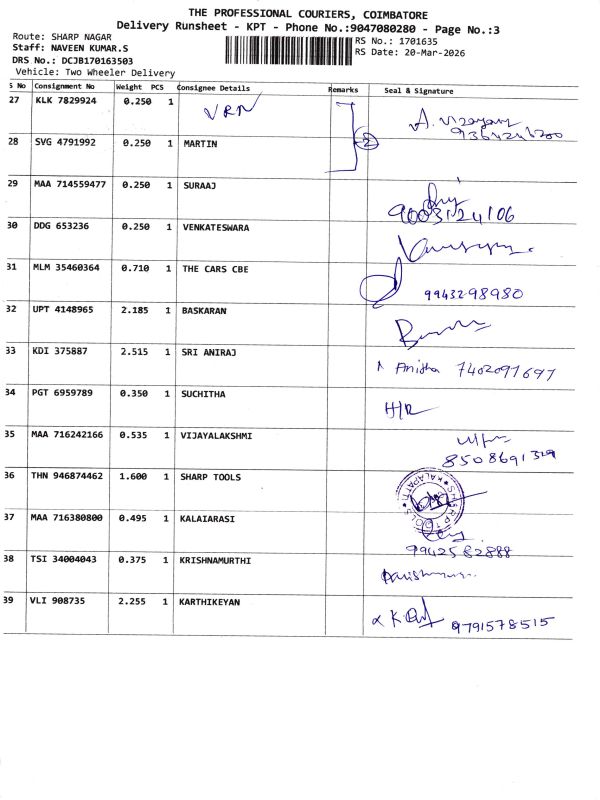 THE PROFESSIONAL COURIERS, COIMBATORE
Delivery Runsheet - KPT - Phone No.:9047080280 - Page No.:3
Route: SHARP NAGAR
RS No.: 1701635
Staff: NAVEEN KUMAR.S
RS Date: 20-Mar-2026
DRS No.: DCJB170163503
Vehicle: Two Wheeler Delivery
S No Consignment No Weight PCS Consignee Details Remarks Seal & Signature
27 KLK 7829924 0.250 1 VRN
28 SVG 4791992 0.250 1 MARTIN 2
29 MAA 714559477 0.250 1 SURAAJ
9003124106
30 DDG 653236 0.250 1 VENKATESWARA
31 MLM 35460364 0.710 1 THE CARS CBE
9943298980
32 UPT 4148965 2.185 1 BASKARAN
33 KDI 375887 2.515 1 SRI ANIRAJ
Anitha 7402091697
34 PGT 6959789 0.350 1 SUCHITHA
H/R
35 MAA 716242166 0.535 1 VIJAYALAKSHMI
8508691329
36 THN 946874462 1.600 1 SHARP TOOLS
SHARP TOOLS KALAPATTI
37 MAA 716380800 0.495 1 KALAIARASI
9942582888
38 TSI 34004043 0.375 1 KRISHNAMURTHI
39 VLI 908735 2.255 1 KARTHIKEYAN
9791578515